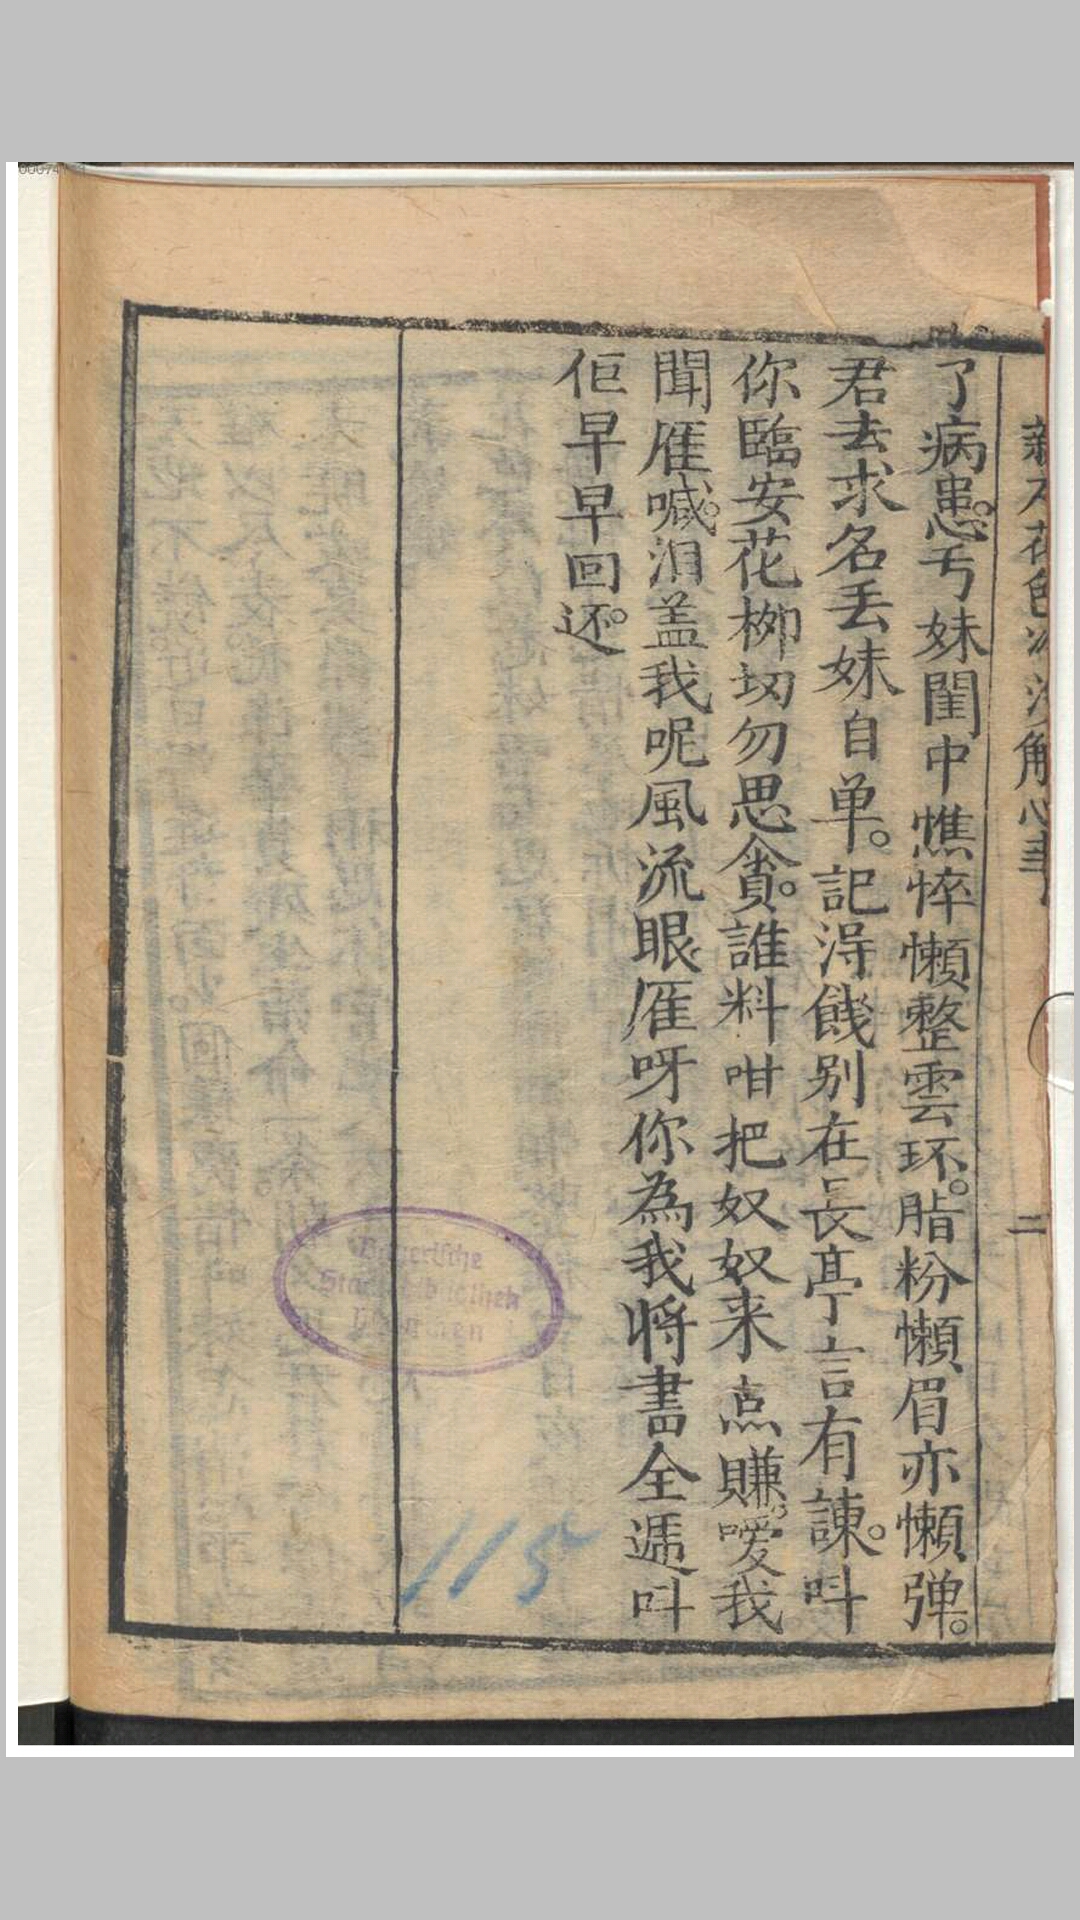 了病患。亐妹閨中憔悴懶整雲环。脂粉懶、眉亦懶弹。
君去求名丢妹自单。記淂餞别在長亭言有諫。呌
你臨安花栁切勿思貪。誰料咁把奴奴来点賺。噯我
聞雁喊。泪盖我呢風流眼雁呀你為我将書全遞呌
佢早早回还。
二
Bayerische
Staatsbibliothek
München
115